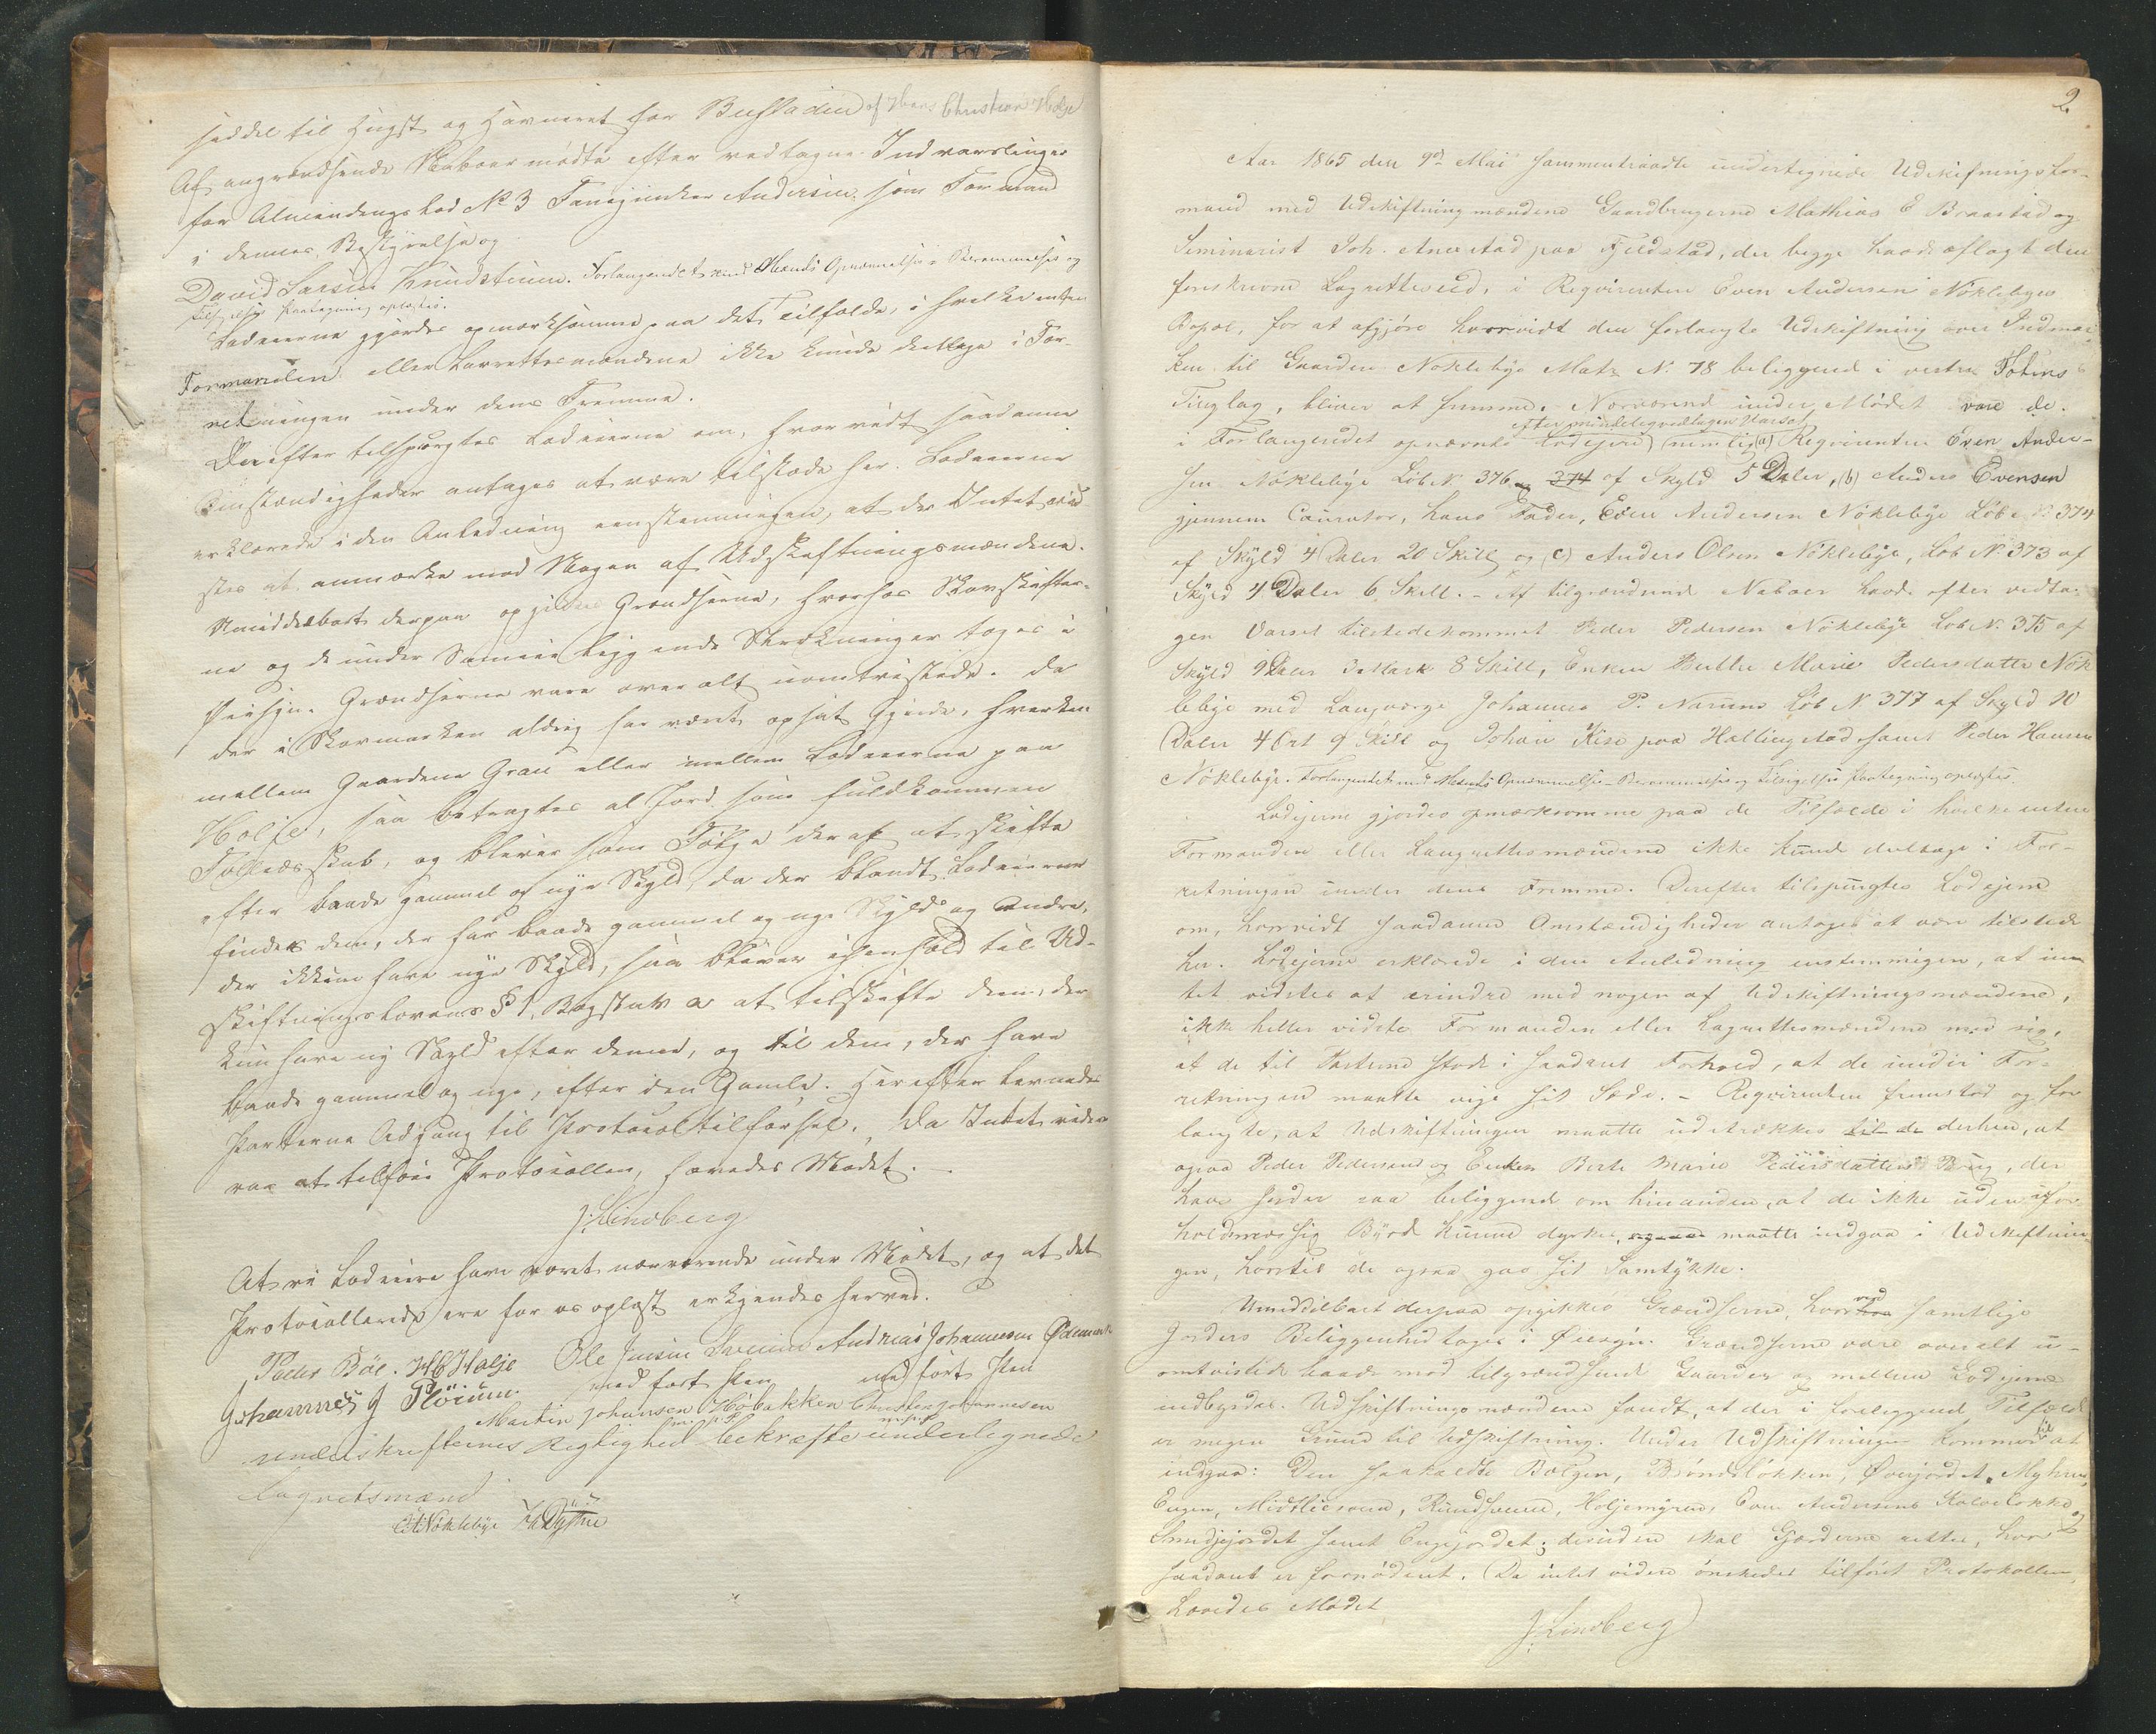 seddel til Hugst og Havneret for Bustaden af Hans Christian Holje
Af angrændsende Naboer mødte efter vedtagne Indvarslinger
for Almindings Lod No 3 Fanejunker Andersen som Formand
i dennes Bestyrelse og
David Larsen Knudstuen. Forlangendet med Mænds Opnævnelse, Berammelse og
Tilsigelses Paategning oplæstes.
Lodeierne gjordes opmærksomme paa det Tilfælde, i hvilke enten
Formanden eller Lavrettesmændene ikke kunde deeltage i For-
retningen under dens Fremme.
Derefter tilspurgtes Lodeierne om, hvorvidt saadanne
Omstændigheder antages at være tilstæde her. Lodeierne
erklærede i den Anledning eenstemmigen, at der Intet vid-
stes at anmærke mod Nogen af Udskiftningsmændene.
Umiddelbart derpaa opgikes Grændserne, hvorhos Skovskifter-
ne og de under Sameie liggende Strækninger toges i
Øiesyn. Grændserne vare overalt uomtvistede. Da
der i Skovmarken aldrig har været opsat Gjerde, hverken
mellem Gaardene Grau eller mellem Lodeierne paa
Holje, saa betragtes al Jord som fuldkommen
Fællesskab, og bliver som Følge deraf at skifte
efter baade gammel og nye Skyld, da der blandt Lodeierne
findes dem, der har baade gammel og nye Skyld og Andre,
der ikkun have nye Skyld, saa bliver i Henhold til Ud-
skiftningslovens § 1, Bogstav a at tilskifte dem, der
kun have ny Skyld efter denne, og til dem, der have
baade gammel og nye, efter den Gamle. Herefter levnedes
Parterne Adgang til Protocoltilførsel. Da Intet videre
var at tilføie Protocollen, hævedes Mødet.
J. Lindberg
At vi Lodeiere have været nærværende under Mødet, og at det
Protocollerede ere for os oplæst erkjendes herved.
Peder Böe. HC Holje Ole Jensen Andreas Johannesen Ødemark
Johannes J med ført Pen med ført Pen
Martin Johansen Høbakken Christen Johannesen
m. p. P. m. p. P.
underskrifternes Rigtighed bekræfte undertegnede
Lagretsmænd
E A Nøklebye
2
Aar 1865 den 9de Mai sammentraadte undertegnede Udskifningsfor-
mand med Udskiftningmændene Gaardbrugerne Mathias E Braastad og
Seminarist Joh. Anestad paa Fjeldstad, der begge havde aflagt den
foreskrevne Lagretteseed, i Reqvirenten Even Andersen Nøklebyes
Bopæl, for at afgjøre hvorvidt den forlangte Udskiftning over Indmar-
ken til Gaarden Nøklebye Matr. N. 78 beliggende i vestre Totens
Tinglag, bliver at fremme. Nærværende under Mødet vare de
efter mindeligvedtagen Varsel
i Forlangendet opnævnte Lodejere, nemlig (a) Reqvirenten Even Ander-
sen Nøklebye Løb N. 376 og 374 af Skyld 5 Daler, (b) Anders Evensen
gjennem Caurator, hans Fader, Even Andersen Nøklebye Løb N. 374
af Skyld 4 Daler 20 Skill og (c) Anders Olsen Nøklebye, Løb N. 373 af
Skyld 4 Daler 6 Skill. - Af tilgrændsende Naboer havde efter vedta-
gen Varsel tilstedekommet Peder Pedersen Nøklebye Løb N. 375 af
Skyld 9 Daler 3 Mark 8 Skill, Enken Berthe Marie Pedersdatter Nøk-
lebye med Laugværge Johannes P. Narum Løb N. 377 af Skyld 10
Daler 4 Ort 9 Skill og Johan Kise paa Hallingstad samt Peder Hansen
Nøklebye. Forlangendet med Mænds Opnævnelse, Berammelses og Tilsigelses Paategning oplæstes.
Lodejerne gjordes opmærksomme paa de Tilfælde i hvilke enten
Formanden eller Laugrettesmændene ikke kunde deltage i For-
retningen under dens Fremme. Derefter tilspurgtes Lodejerne
om, hvorvidt saadanne Omstændigheder antages at være tilstede
her. Lodejerne erklærede i den Anledning enstemmigen, at in-
tet vidstes at erindre mod nogen af Udskiftningsmændene,
ikke heller vidste Formanden eller Lagrettesmændene med sig,
at de til Parterne stode i saadant Forhold, at de under For-
retningen maatte vige sit Sæde. - Reqvirenten fremstod og for
langte, at Udskiftningen maatte udstrækkes til de derhen, at
ogsaa Peder Pedersens og Enken Berte Marie Pedersdatters Brug, der
have Jorder saa beliggende om hinanden, at de ikke uden ufor-
holdsmæssig Byrd kunne dyrkes, maatte indgaa i Udskiftnin-
gen, hvortil de ogsaa gav sit Samtykke.
Umiddelbart derpaa opgikkes Grændserne, hvorved samtlige
Jorders Beliggenhed toges i Øiesyn. Grændserne vare overalt u-
omtvistede baade mod tilgrændsende Gaarder og mellem Lodejerne
indbyrdes. Udskiftningsmændene fandt, at der i foreliggende Tilfælde
er megen Grund til Udskiftning. Under Udskiftningen kommer til at
indgaa: Den saakaldte Bølgen, Brøndløkken, Øverjordet, Myhren,
Engen, Midtlisveen, Rundsveen, Holjemyren, Even Andersens Kalveløkke og
Smedjejordet samt Engejordet; desuden skal Gjærderne rettes, hvor
saadant er fornødent. Da intet videre ønskedes tilført Protokollen,
hævedes Mødet
J. Lindberg